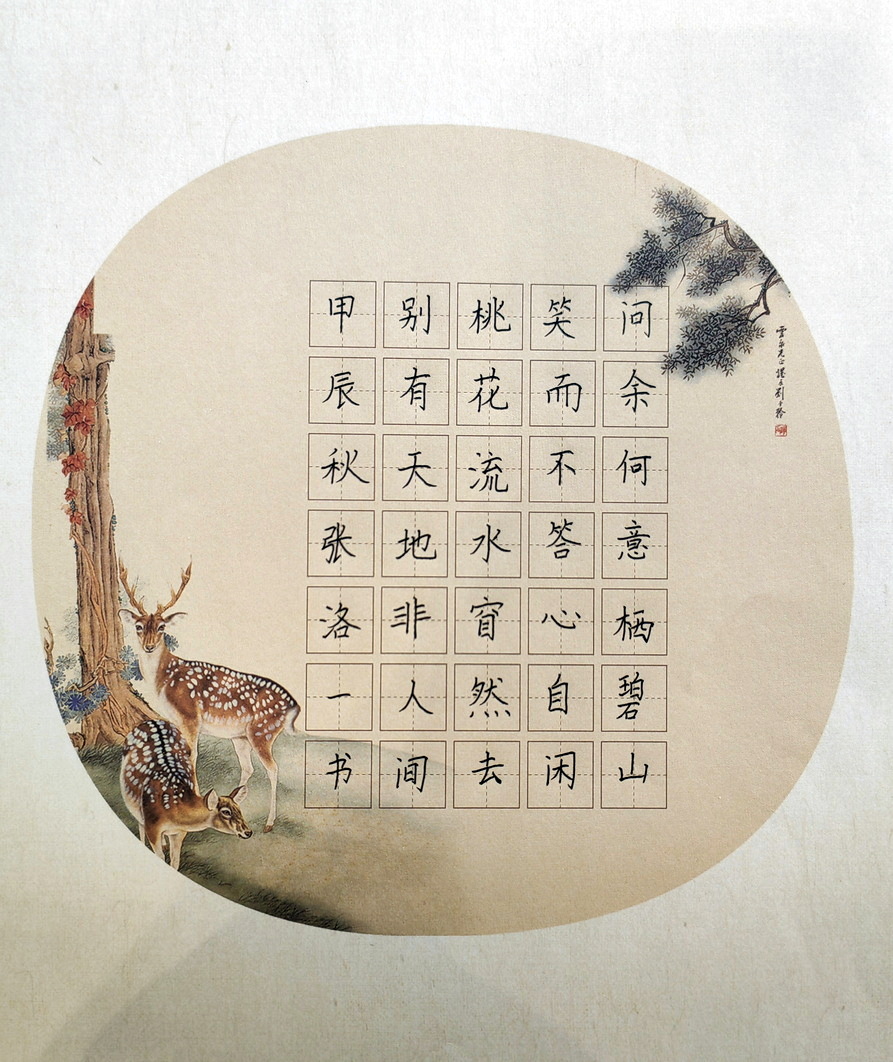 问余何意栖碧山
笑而不答心自闲
桃花流水窅然去
别有天地非人间
甲辰秋张洛一书